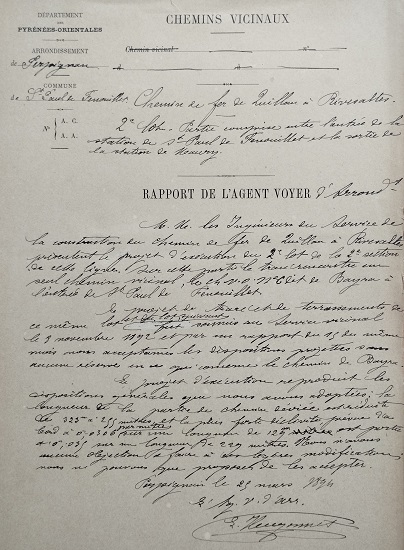 DÉPARTEMENT
DES
PYRÉNÉES-ORIENTALES
ARRONDISSEMENT
de Perpignan
COMMUNE
de St Paul de Fenouillet
N° A. C.
A. A.
CHEMINS VICINAUX
Chemin vicinal N°
d à
Chemin de fer de Quillan à Rivesaltes.
2e lot. Partie comprise entre l'entrée de la
station de St Paul de Fenouillet et la sortie de
la station de Maury.
RAPPORT DE L'AGENT VOYER d'Arrondt
M.M. les Ingénieurs du Service de
la construction du chemin de fer de Quillan à Rivesaltes
présentent le projet d'exécution du 2e lot de la 2e section
de cette ligne. Sur cette partie le tracé rencontre un
seul chemin vicinal, le ch. v. o. N° dit de Bayra à
l'entrée de St Paul de Fenouillet.
Le projet de tracé et de terrassements de
ce même lot fut soumis au Service vicinal
le 3 novembre 1892 et par son rapport du 15 du même
mois nous acceptâmes les dispositions projetées sans
aucune réserve en ce qui concerne le chemin de Bayra.
Le projet d'exécution reproduit les
dispositions générales que nous avons adoptées; la
longueur de la partie de chemin déviée est réduite
de 325m à 255 mètres, et la plus forte déclivité prévue d'a
bord à 0,0306 par mètre sur une longueur de est portée
à 0,035 sur une longueur de mètres. Nous n'avons
aucune objection à faire à ces légères modifications;
nous ne pouvons que proposer de les accepter.
Perpignan le 23 mars 1894
L'Ag. v. d'arr.